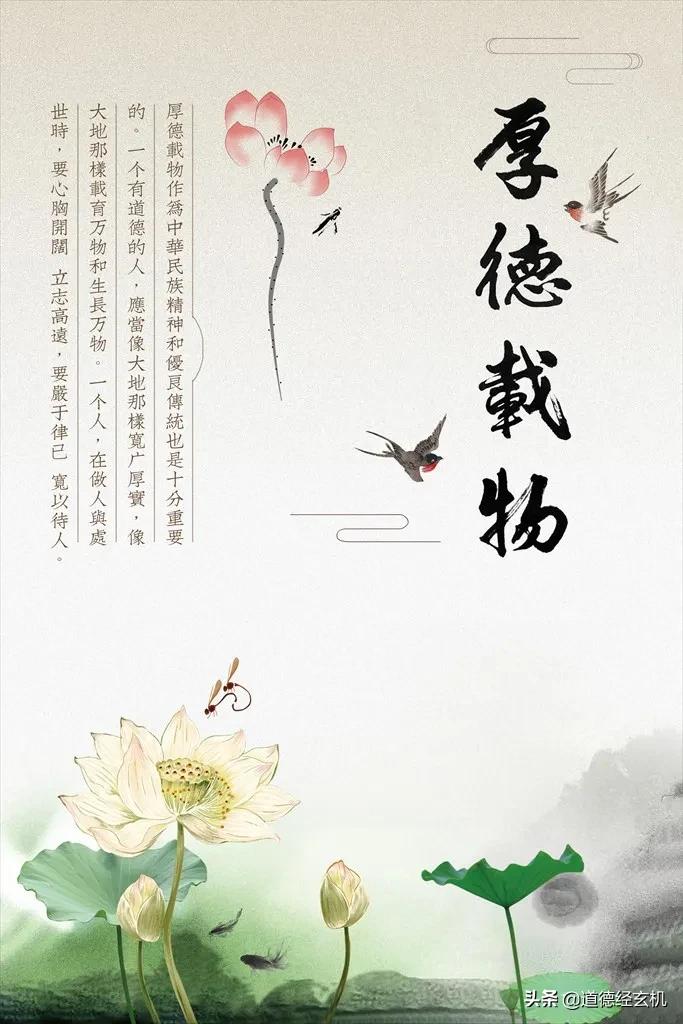 厚德載物
厚德載物作爲中華民族精神和優良傳統也是十分重要
的。一个有道德的人，應當像大地那樣寬广厚實，像
大地那樣載育万物和生長万物。一个人，在做人與處
世時，要心胸開闊 立志高遠，要嚴于律已 寬以待人。
头条 @道德经玄机